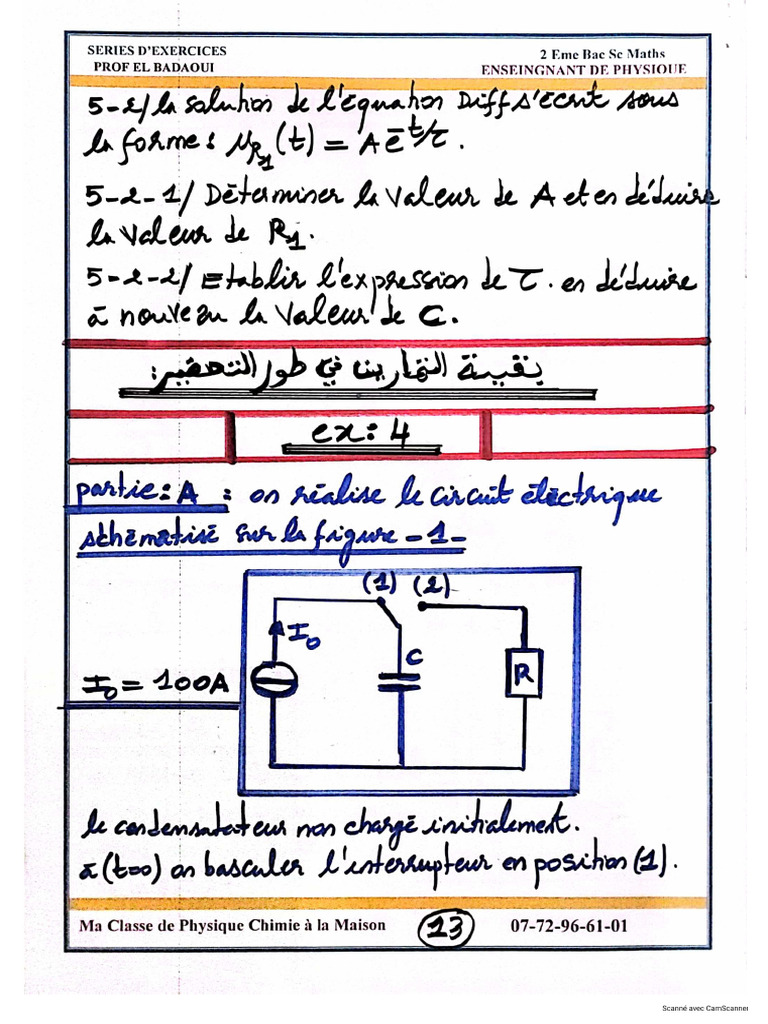 SERIES D'EXERCICES 2 Eme Bac Sc Maths
PROF EL BADAOUI ENSEINGNANT DE PHYSIQUE
5-2/ la solution de l'équation Diff s'écrit sous
la forme : u_R1(t) = A e^-t/τ.
5-2-1/ Déterminer la valeur de A et en déduire
la valeur de R1.
5-2-2/ Etablir l'expression de τ. en déduire
à nouveau la valeur de C.
بقية التمارين في طور التحضير:
ex: 4
partie: A : on réalise le circuit électrique
schématisé sur la figure -1-
(1) (2)
I0
C
R
I0 = 100A
le condensateur non chargé initialement.
à (t=0) on basculer l'interrupteur en position (1).
Ma Classe de Physique Chimie à la Maison 13 07-72-96-61-01
Scanné avec CamScanner